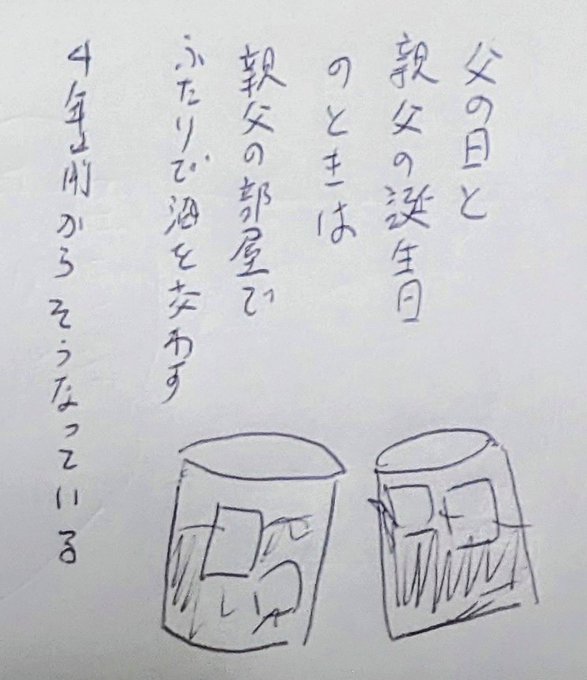 父の日と
親父の誕生日
のときは
親父の部屋で
ふたりで酒を交わす
4年前からそうなっている